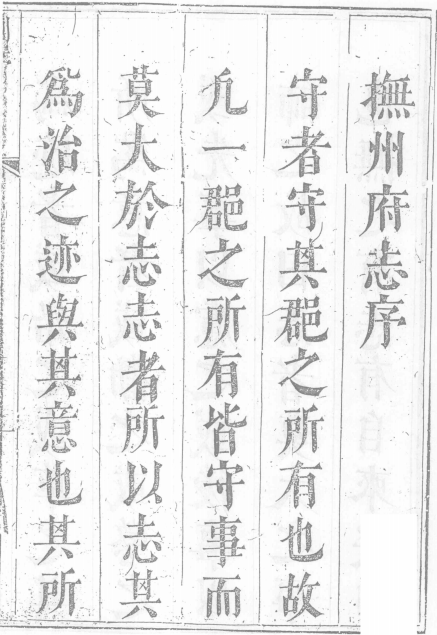 撫州府志序
守者守其郡之所有也故
凡一郡之所有皆守事而
莫大於志志者所以志其
為治之迹與其意也其所